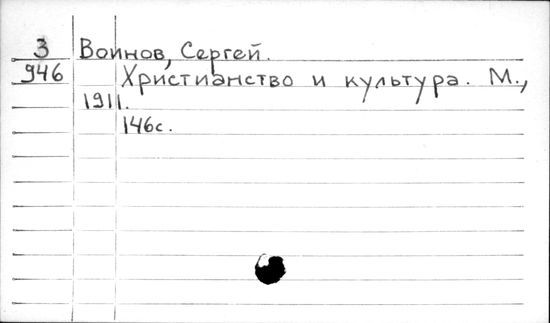 3 Воинов, Сергей.
946 Христианство и культура. М.,
1911.
146с.